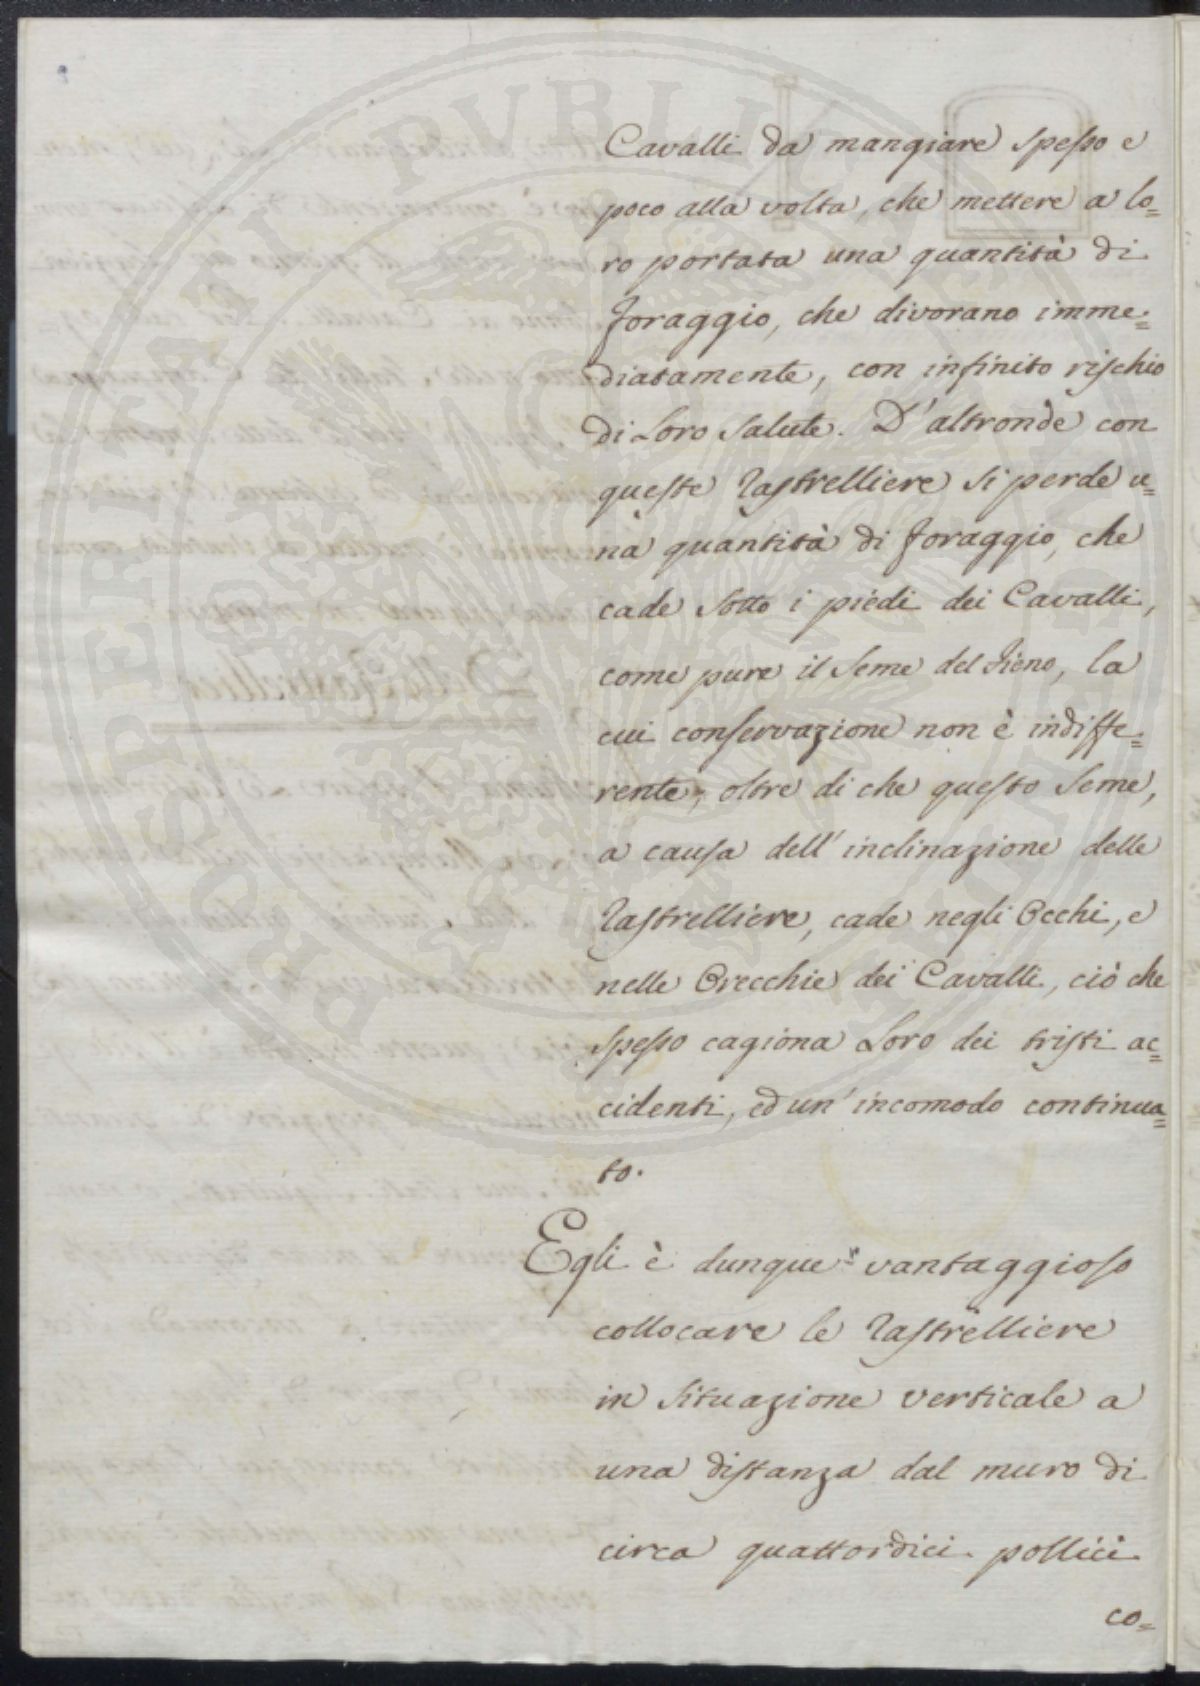 PROSPERITATI PUBLICAE
Cavalli da mangiare spesso e
poco alla volta, che mettere a lo=
ro portata una quantità di
foraggio, che divorano imme=
diatamente, con infinito rischio
di Loro Salute. D'altronde con
queste Rastrelliere si perde u=
na quantità di foraggio, che
cade sotto i piedi dei Cavalli,
come pure il Seme del Fieno, la
cui conservazione non è indiffe=
rente, oltre di che questo Seme,
a causa dell'inclinazione delle
Rastrelliere, cade negli Occhi, e
nelle Orecchie dei Cavalli, ciò che
spesso cagiona Loro dei tristi ac=
cidenti, ed un'incomodo continua=
to.
Egli è dunque vantaggioso
collocare le Rastrelliere
in Situazione verticale a
una distanza dal muro di
circa quattordici pollici
co=